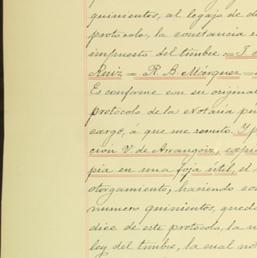 quinientos, al legajo de d
protocolo, la constancia e
impuesto del timbre = J.
Ruiz = R. B. Márquez =
Es conforme con su original
protocolo de la Notaría pú
cargo, á que me remito. Y p
cion V. de Arrangoiz, expi
pia en una foja útil, el
otorgamiento, haciendo
numero quinientos, qued
dice de este protocolo, la
ley del timbre, la cual no